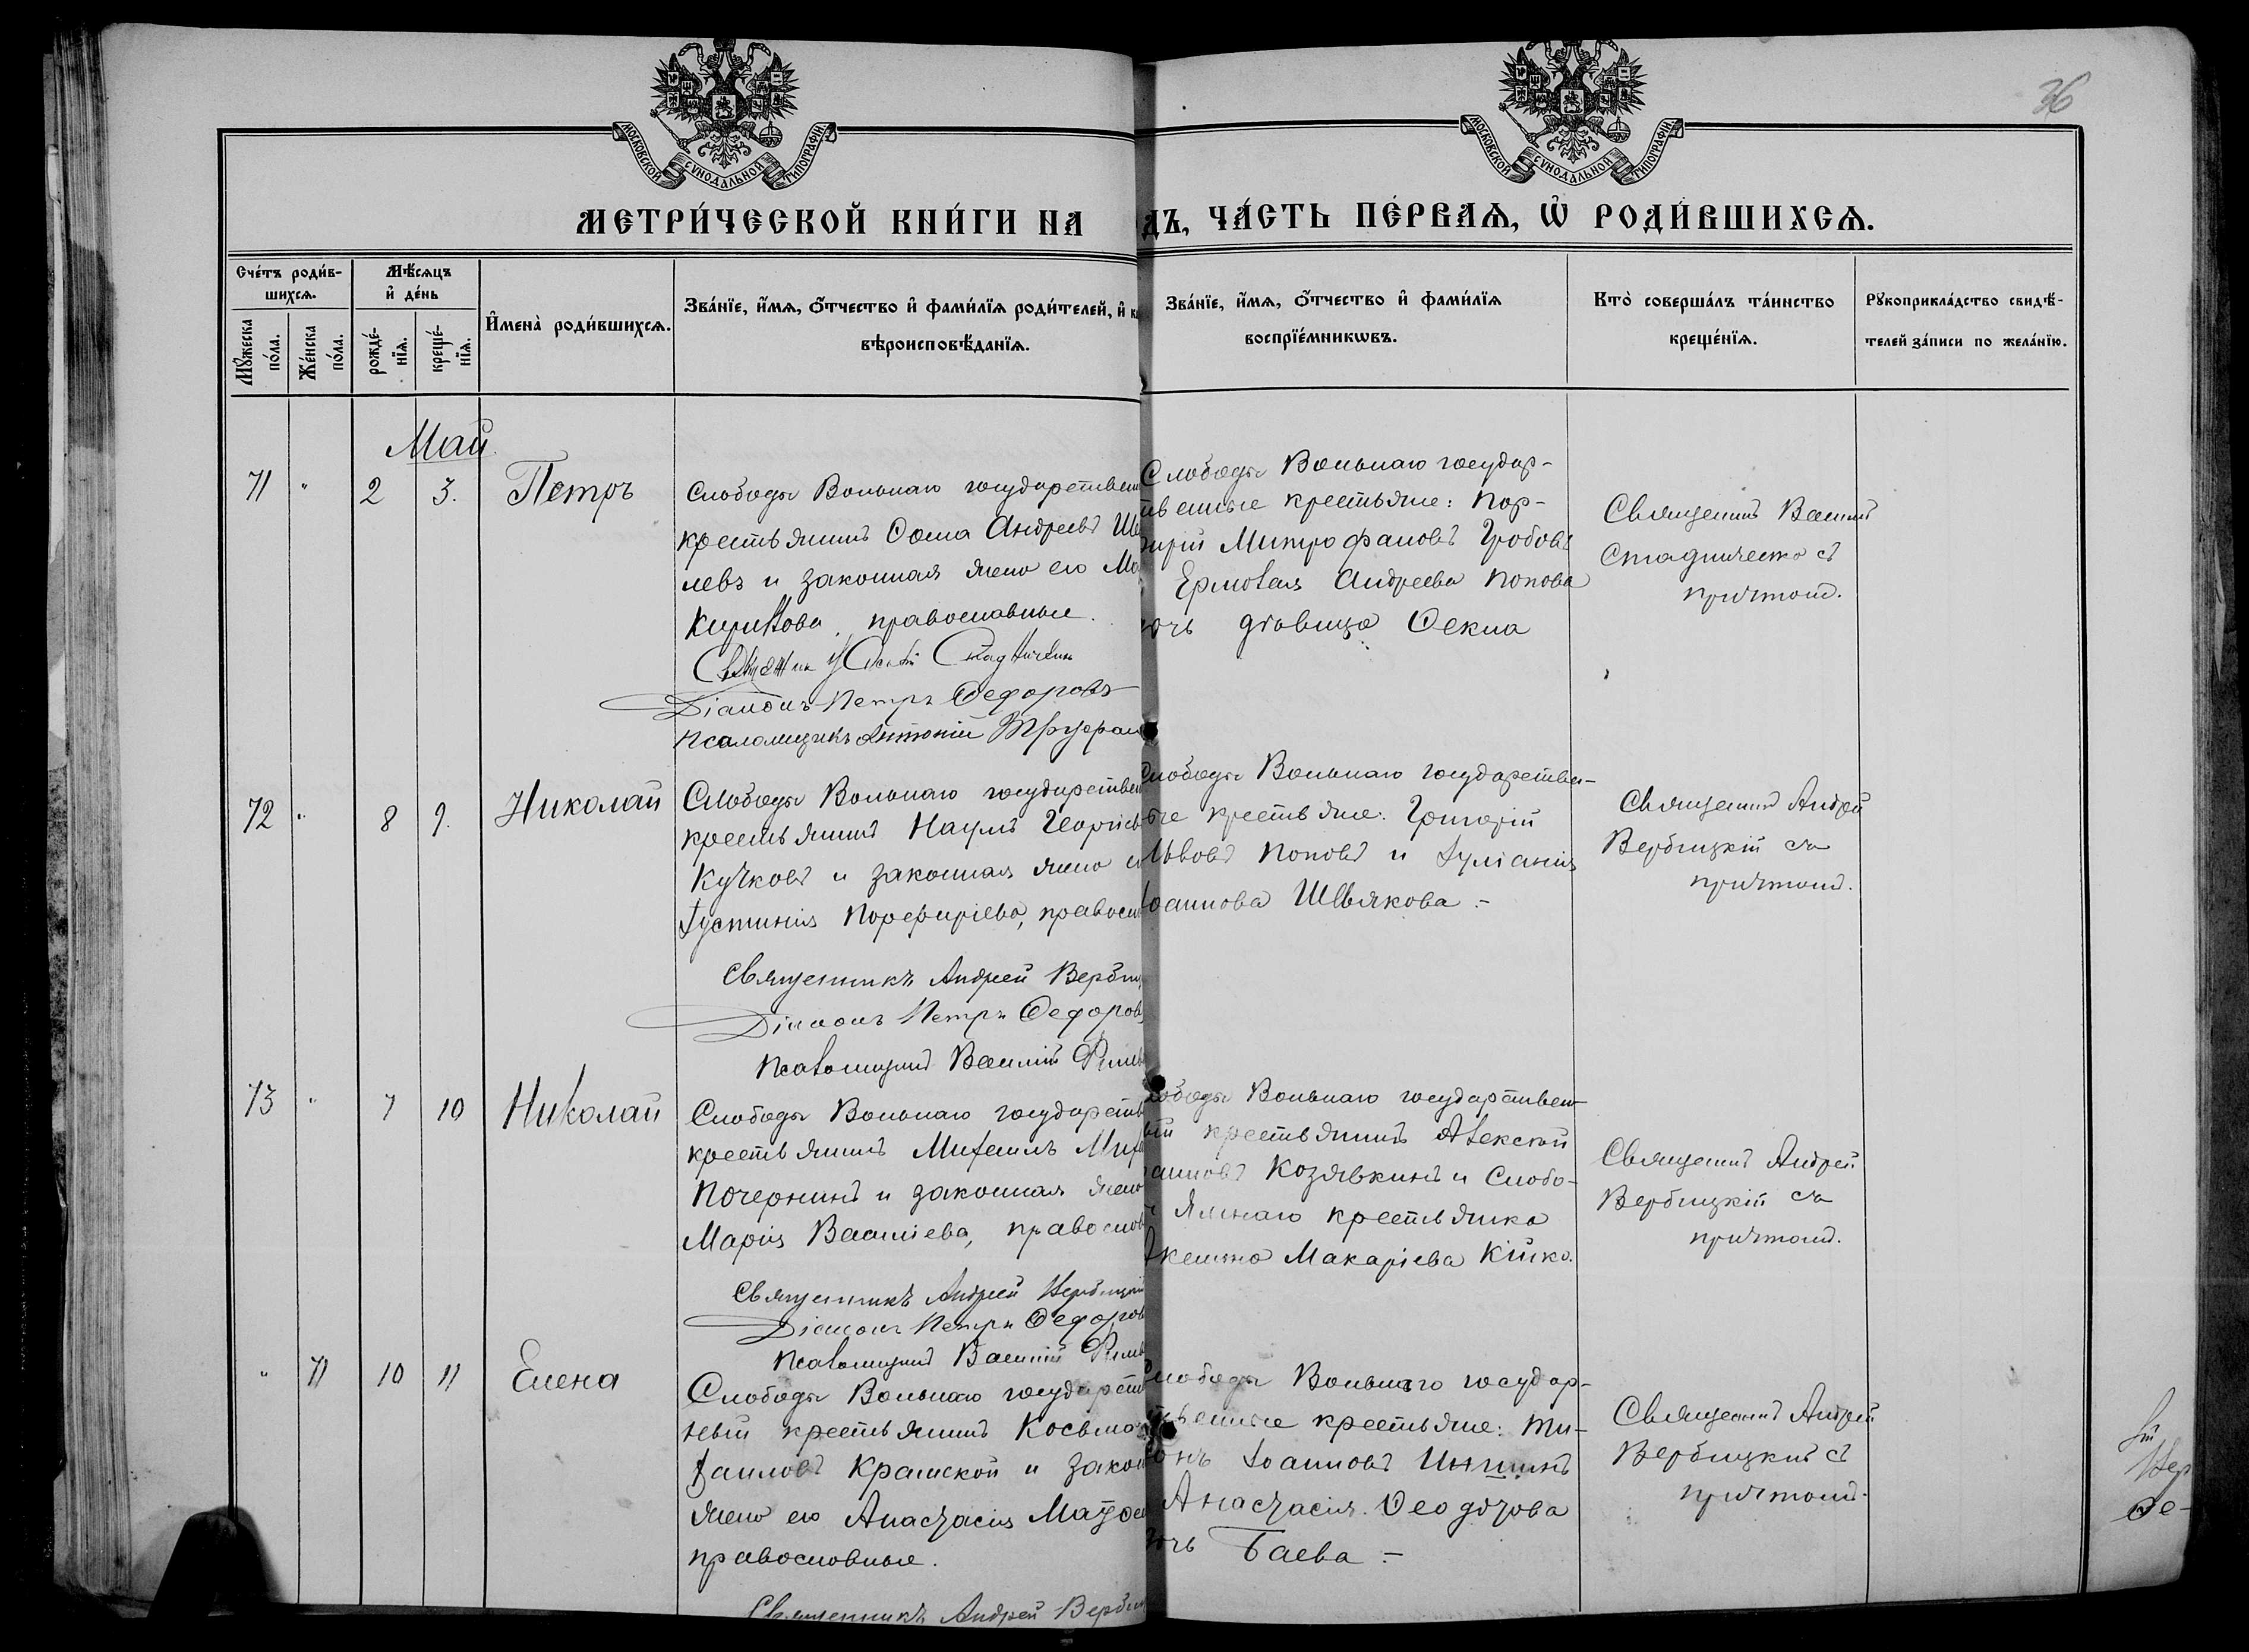 36
МОСКОВСКОЙ СѴНОДАЛЬНОЙ ТИПОГРАФІИ
МОСКОВСКОЙ СѴНОДАЛЬНОЙ ТИПОГРАФІИ
МЕТРИ́ЧЕСКОЙ КНИ́ГИ НА
ДЪ, ЧА́СТЬ ПЕ́РВАѦ, Ѡ҆ РОДИ́ВШИХСѦ.
Сче́тъ роди́в-
шихсѧ.
Мꙋ́жеска
по́ла.
Же́нска
по́ла.
Мѣ́сѧцъ
и҆ де́нь
рожде́-
нїѧ.
креще́-
нїѧ.
И҆мена̀ роди́вшихсѧ.
Зва́нїе, и҆́мѧ, ѻ҆́тчество и҆ фами́лїѧ роди́телей, и҆
вѣроисповѣ́данїѧ.
Зва́нїе, и҆́мѧ, ѻ҆́тчество и҆ фами́лїѧ
воспрїе́мникѡвъ.
Кто̀ соверша́лъ та́инство
креще́нїѧ.
Рꙋкоприкла́дство свидѣ́-
телей за́писи по жела́нїю.
Май
71 " 2 3. Петръ
Слободы Вольнаго государствен
крестьянинъ Ѳома Андреевъ Ше
левъ и законная жена его Ма
Кирикова, православные.
Діаконъ Петръ Ѳедоровъ
Псаломщикъ Антоній
Слободы Вольнаго государ-
твенные крестьяне: Пор-
фирій Митрофановъ Гробовъ
Ермолая Андреева Попова
дочь дѣвица Ѳекла
Священникъ Василій
Стадниченко съ
причтомъ.
72 " 8 9. Николай
Слободы Вольнаго государствен
крестьянинъ Наумъ Георгіев
Кучковъ и законная жена
Іустинія Порфиріева, правосл
Священникъ Андрей Вербиц
Діаконъ Петръ Ѳедоровъ
Псаломщикъ Василій
Слободы Вольнаго государствен-
ые крестьяне: Григорій
Львовъ Поповъ и Іуліанія
Іоаннова Шевлякова.-
Священникъ Андрей
Вербицкій съ
причтомъ.
73 " 7 10 Николай
Слободы Вольнаго государств
крестьянинъ Михаилъ Миха
Почернинъ и законная жена
Марія Василіева, православ
Священникъ Андрей Вербицкій
Діаконъ Петръ Ѳедоров
Псаломщикъ Василій
лободы Вольнаго государствен-
ый крестьянинъ Алексѣй
Козявкинъ и Слобо-
Ямнаго крестьянка
Макаріева Кійко.
Священникъ Андрей
Вербицкій съ
причтомъ.
" 71 10 11 Елена
Слободы Вольнаго государств
ный крестьянинъ Косьма
Крамской и закон
жена его Анастасія
православные.
Священникъ Андрей Вербиц
Слободы Вольнаго государ-
твенные крестьяне: Ти-
хонъ Іоанновъ
Анастасія Ѳеодорова
дочь Баева.-
Священникъ Андрей
Вербицкій съ
причтомъ.